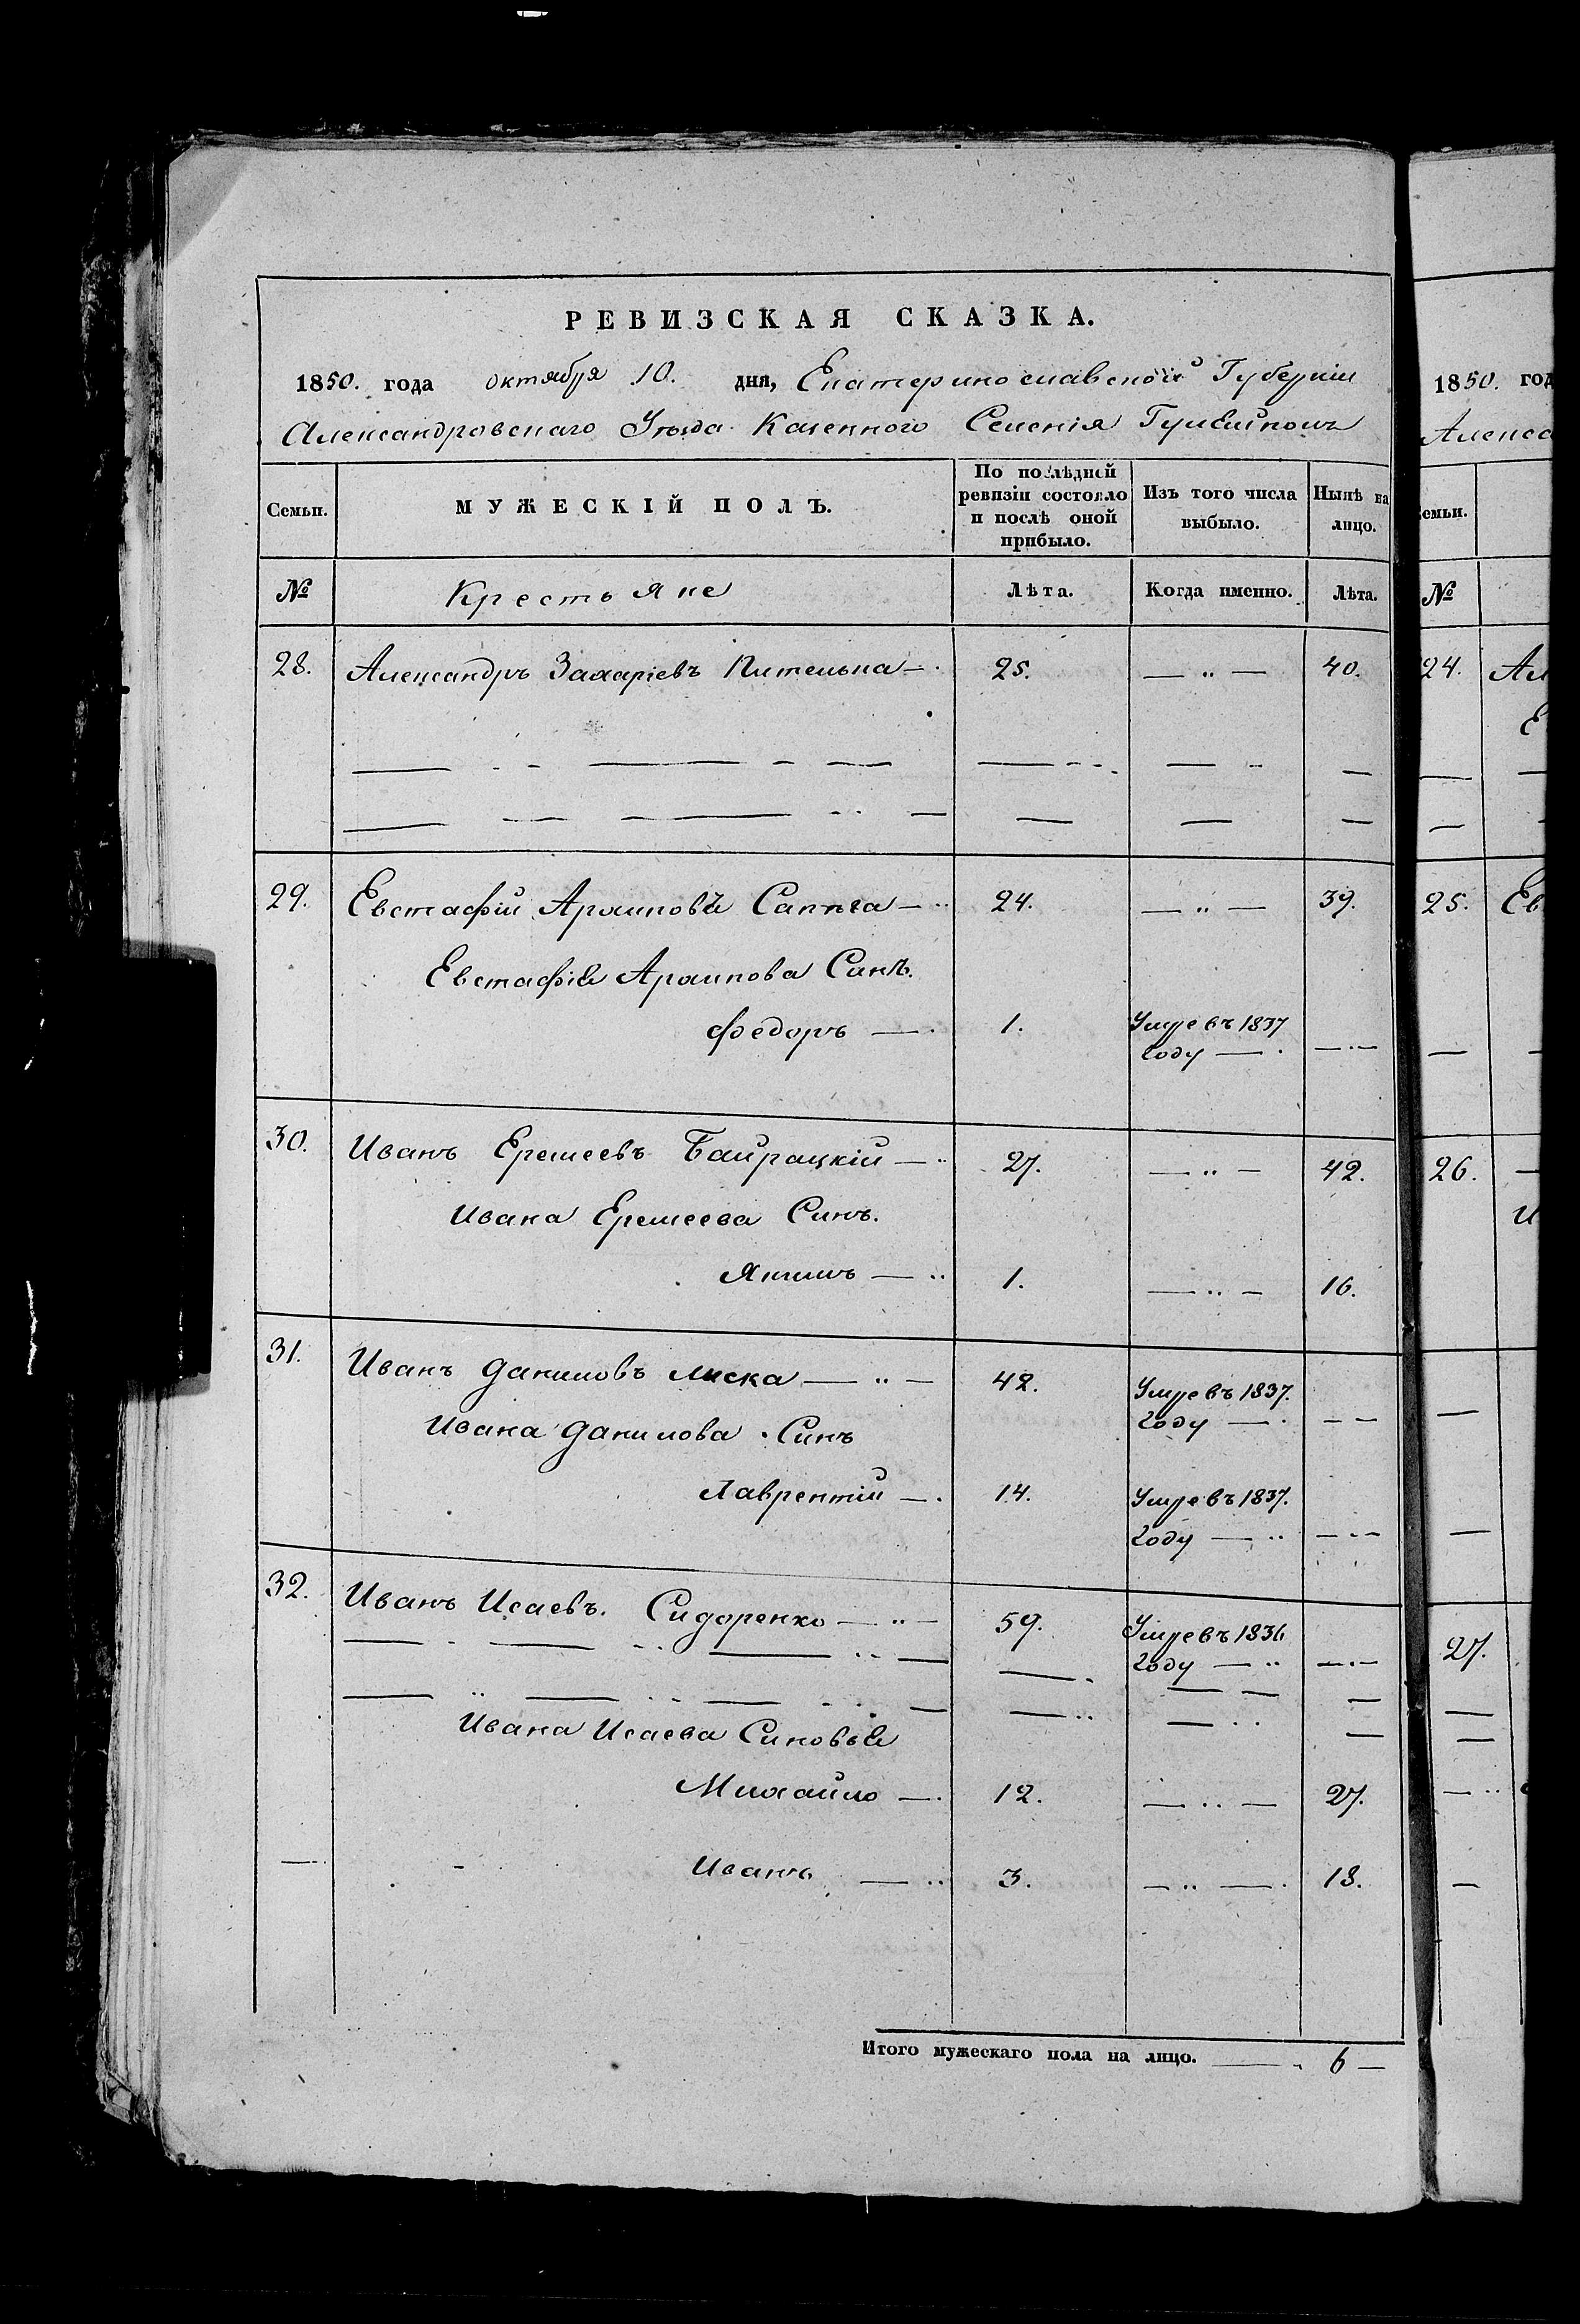 РЕВИЗСКАЯ СКАЗКА.
1850. года октября 10. дня, Екатеринославской Губерніи
Александровскаго Уѣзда Казенного Селенія
Семьи. МУЖЕСКІЙ ПОЛЪ. По послѣдней ревизіи состояло и послѣ оной прибыло. Изъ того числа выбыло. Нынѣ на лицо.
№ Крестьяне Лѣта. Когда именно. Лѣта.
28. Александръ Захаріевъ 25. — „ — 40.
29. Евстафій Архиповъ Сапѣга — 24. — „ — 39.
Евстафія Архипова Синъ.
Федоръ — 1. Умре въ 1837 году —
30. Иванъ Еремеевъ Байрацкій — 27. — „ — 42.
Ивана Еремеева Синъ.
Якимъ — 1. — „ — 16.
31. Иванъ Даниловъ Лиска — „ — 42. Умре въ 1837. году —
Ивана Данилова Синъ
Лаврентій — 14. Умре въ 1837. году —
32. Иванъ Исаевъ. Сидоренко — „ — 59. Умре въ 1836 году —
Ивана Исаева Синовья
Михайло — 12. — „ — 27.
Иванъ — 3. — „ — 18.
Итого мужескаго пола на лицо. — 6 —
1850. год
Алекса
емьи.
№
24. Ал
Е
25. Ев
26. —
И
27.